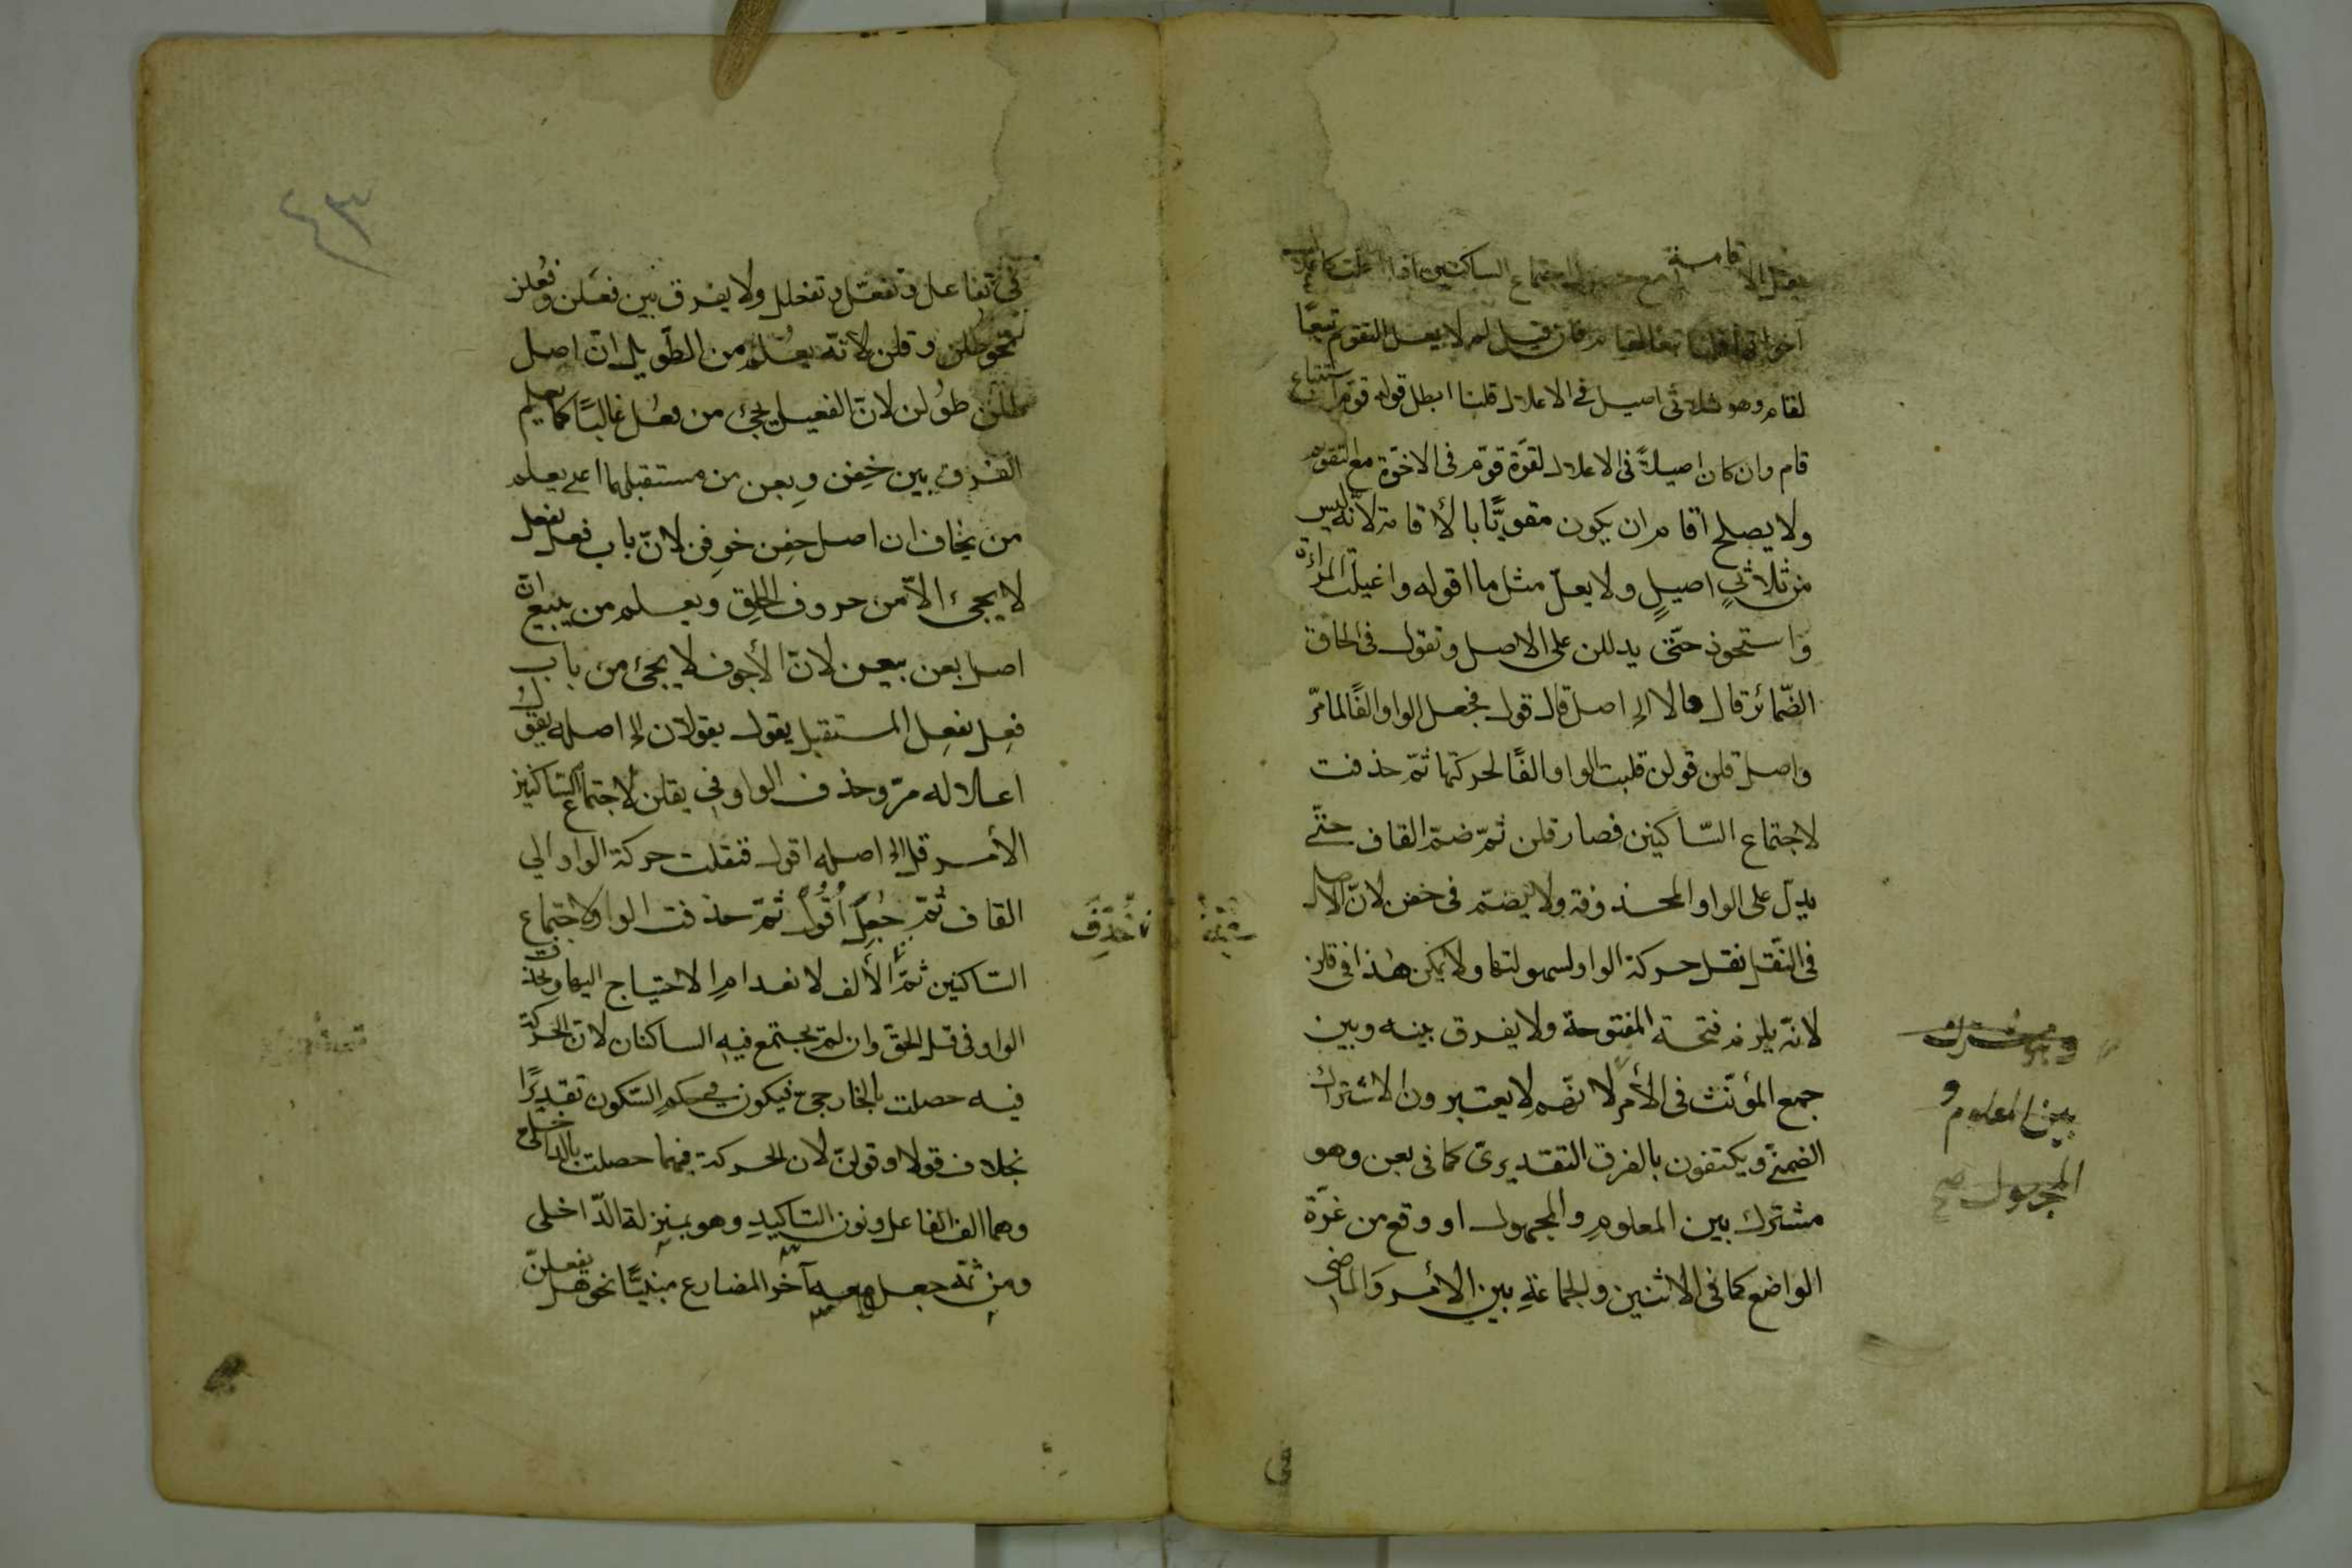 يعل الاقامة مع حصول اجتماع الساكنين اذا اعلت كاعلال
اخواتها قلنا تبعا لقام فان قيل لم لا يعل التقوم تبعًا
لقام وهو ثلاثى اصيل فى الاعلال قلنا ابطل قوله قوّم استتباع
قام وان كان اصيلاً فى الاعلال لقوّة قوّم فى الاخوّة مع التقوم
ولا يصلح اقام ان يكون مقويًّا بالأقامة لانّه ليس
من ثلاثيٍ اصيلٍ ولا يعلّ مثل ما اقوله واغيلت المراءة
واستحوذ حتّى يدللن على الاصل وتقول فى الحاق
الضّمائر قال قالا الى اصل قال قول فجعل الواو الفًا لما مرّ
واصل قلن قولن قلبت الواو الفًا لحركتها ثمّ حذفت
لاجتماع السّاكنين فصار قلن ثمّ ضمّ القاف حتّى
يدلّ على الواو المحذوفة ولا يضمّ فى خفن لانّ الاصل
فى النّقل نقل حركة الواو لسهولتها ولا يمكن هذا فى قلن
لانّه يلزم فتحة المفتوحة ولا يفرق بينه وبين
جمع المؤنّث فى الأمر لانّهم لا يعتبرون الاشتراك
الضمنىّ ويكتفون بالفرق التقديرىّ كما فى بعن وهو
مشترك بين المعلوم والمجهول او وقع من غرّة
الواضع كما فى الاثنين والجماعة بين الأمر والماضى
بين المعلوم و
المجهول صح
٤٣
فى تفاعل وتفعّل وتفعلل ولا يفرق بين فعلن وفعلن
نحو طلن وقلن لانّه يعلم من الطّويل انّ اصل
طلن طولن لانّ الفعيل يجئ من فعُل غالبًا كما يعلم
الفرق بين خِفن وبِعن من مستقبلهما اعنى يعلم
من يخاف ان اصل خفن خوِفن لانّ باب فعل يفعل
لا يجئ الاّ من حروف الحلق ويعلم من يبيع انّ
اصل بعن بيعن لانّ الأجوف لا يجئ من باب
فعِل يفعِل المستقبل يقول يقولان الى اصله يقول
اعلاله مرّ وحذف الواو فى يقلن لاجتماع السّاكنين
الأمر قل الى اصله اقول فنقلت حركة الواو الى
القاف ثمّ جعل اُقُول ثمّ حذفت الواو لاجتماع
السّاكنين ثمّ الألف لانعدام الاحتياج اليها وتحذف
الواو فى قل الحقّ وان لم يجتمع فيه الساكنان لانّ الحركة
فيه حصلت بالخارجىّ فيكون فى حكم السّكون تقديرًا
بخلاف قولا وقولنّ لان الحركة فيهما حصلت بالدّاخلى
وهما الف الفاعل ونون التاكيد وهو بمنزلة الدّاخلى
ومن ثمّة جعل معه آخر المضارع مبنيًّا نحو هل يفعلنّ